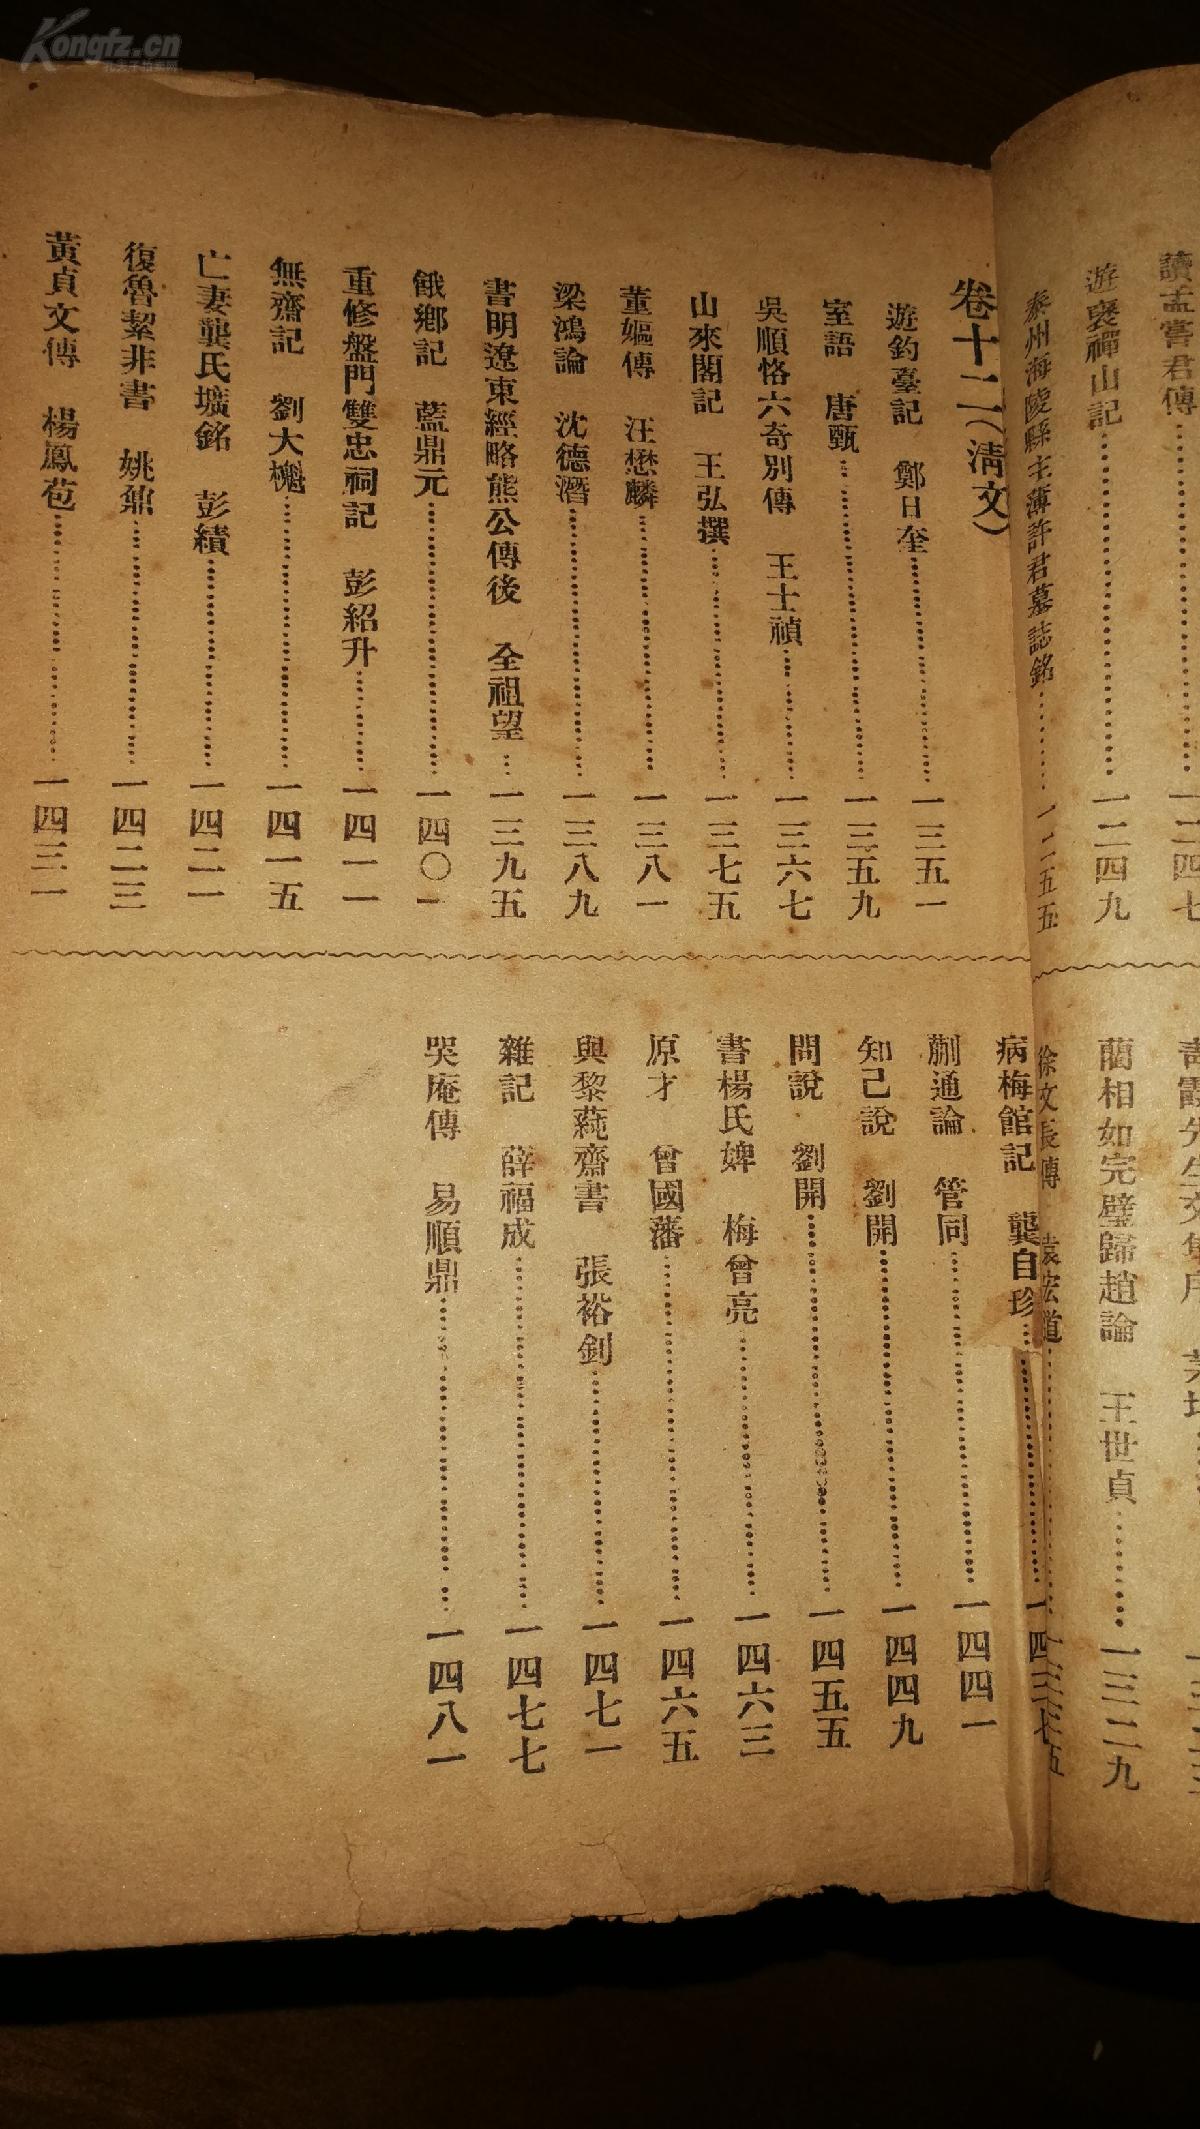 Kongfz.cn
讀孟嘗君傳 一二四七
遊褒禪山記 一二四九
泰州海陵縣主簿許君墓誌銘 一二五五
藺相如完璧歸趙論 王世貞 一三二九
徐文長傳 袁宏道
卷十二(清文)
遊釣臺記 鄭日奎 一三五一
室語 唐甄 一三五九
吳順恪六奇別傳 王士禎 一三六七
山來閣記 王弘撰 一三七五
董嫗傳 汪懋麟 一三八一
梁鴻論 沈德潛 一三八九
書明遼東經略熊公傳後 全祖望 一三九五
餓鄉記 藍鼎元 一四〇一
重修盤門雙忠祠記 彭紹升 一四一一
無齋記 劉大櫆 一四一五
亡妻龔氏壙銘 彭績 一四二一
復魯絜非書 姚鼐 一四二三
黃貞文傳 楊鳳苞 一四三一
病梅館記 龔自珍 一四三七
蒯通論 管同 一四四一
知己說 劉開 一四四九
問說 劉開 一四五五
書楊氏婢 梅曾亮 一四六三
原才 曾國藩 一四六五
與黎蒓齋書 張裕釗 一四七一
雜記 薛福成 一四七七
哭庵傳 易順鼎 一四八一